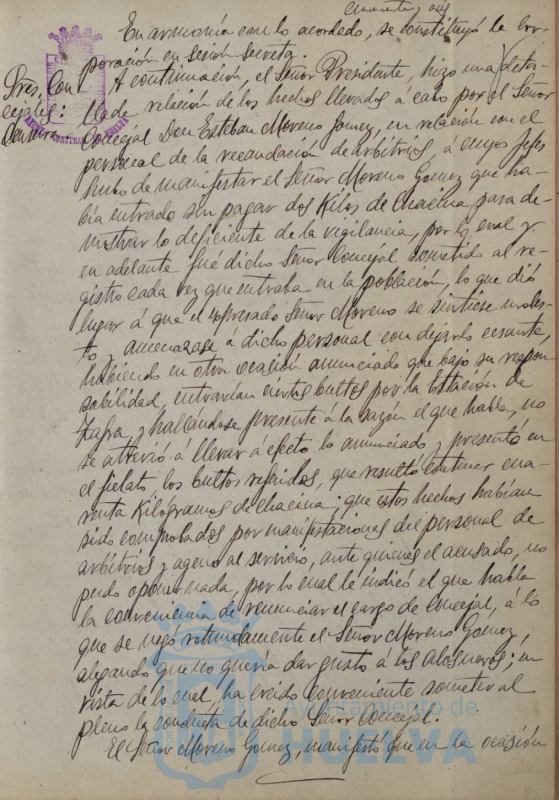 cuarenta y seis
En armonía con lo acordado, se constituyó la Cor-
poración en sesión secreta.
Pres. Con
cejales:
Censura
A continuación, el Señor Presidente, hizo una deta-
llada relación de los hechos llevados a cabo por el Señor
Concejal Don Esteban Moreno Gomez, en relación con el
personal de la recaudación de arbitrios, a cuyos Jefes
hubo de manifestar el Señor Moreno Gómez que ha-
bía entrado sin pagar dos Kilos de Chacina para de-
mostrar lo deficiente de la vigilancia, por lo cual y
en adelante fué dicho Señor Concejal sometido al re-
gistro cada vez que entraba en la población, lo que dió
lugar á que el expresado Señor Moreno se sintiese moles-
to y amenazase á dicho personal con dejarlo cesante,
habiendo en otra ocasión anunciado que bajo su respon
sabilidad, entrarían ciertos bultos por la Estación de
Zafra, y hallándose presente á la sazón el que habla, no
se atrevió a llevar á efecto lo anunciado y presentó en
el fielato los bultos referidos, que resultó contener cua-
renta Kilogramos de chacina; que estos hechos habían
sido comprobados por manifestaciones del personal de
arbitrios y ageno al servicio, ante quienes el acusado, no
pudo oponer nada, por lo cual le indicó el que habla
la conveniencia de renunciar el cargo de Concejal, á lo
que se negó rotundamente el Señor Moreno Gómez,
alegando que no quería dar gusto á los alosneros; en
vista de lo cual, ha creido conveniente someter al
pleno la conducta de dicho Señor Concejal.
El Señor Moreno Gomez, manifestó que en la ocasión
Ayuntamiento de
HUELVA